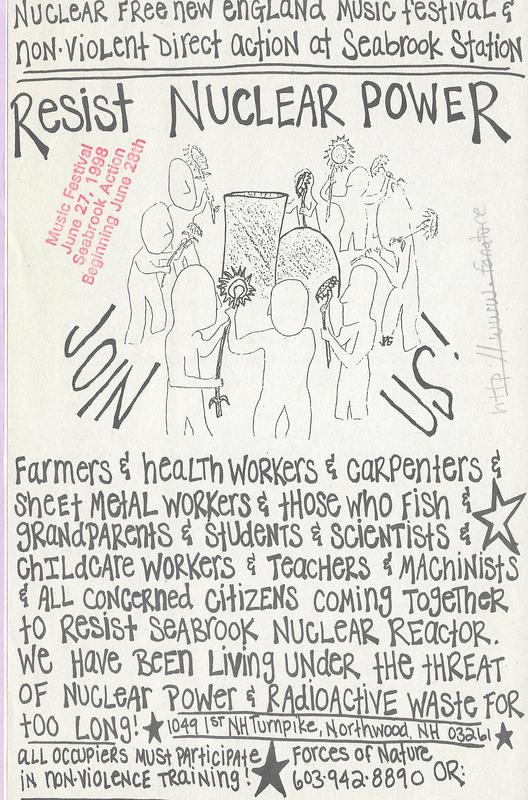 NUCLEAR FREE NEW ENGLAND MUSIC FESTIVAL &
NON-VIOLENT DIRECT ACTION AT SEABROOK STATION
RESIST NUCLEAR POWER
Music Festival
June 27, 1998
Seabrook Action
Beginning June 28th
http://www.
JOIN US!
FARMERS & HEALTH WORKERS & CARPENTERS &
SHEET METAL WORKERS & THOSE WHO FISH &
GRANDPARENTS & STUDENTS & SCIENTISTS &
CHILDCARE WORKERS & TEACHERS & MACHINISTS
& ALL CONCERNED CITIZENS COMING TOGETHER
TO RESIST SEABROOK NUCLEAR REACTOR.
WE HAVE BEEN LIVING UNDER THE THREAT
OF NUCLEAR POWER & RADIOACTIVE WASTE FOR
TOO LONG! ★ 1049 1ST NH Turnpike, Northwood, NH 03261 ★
ALL OCCUPIERS MUST PARTICIPATE
IN NON-VIOLENCE TRAINING! ★
Forces of Nature
603-942-8890 OR: